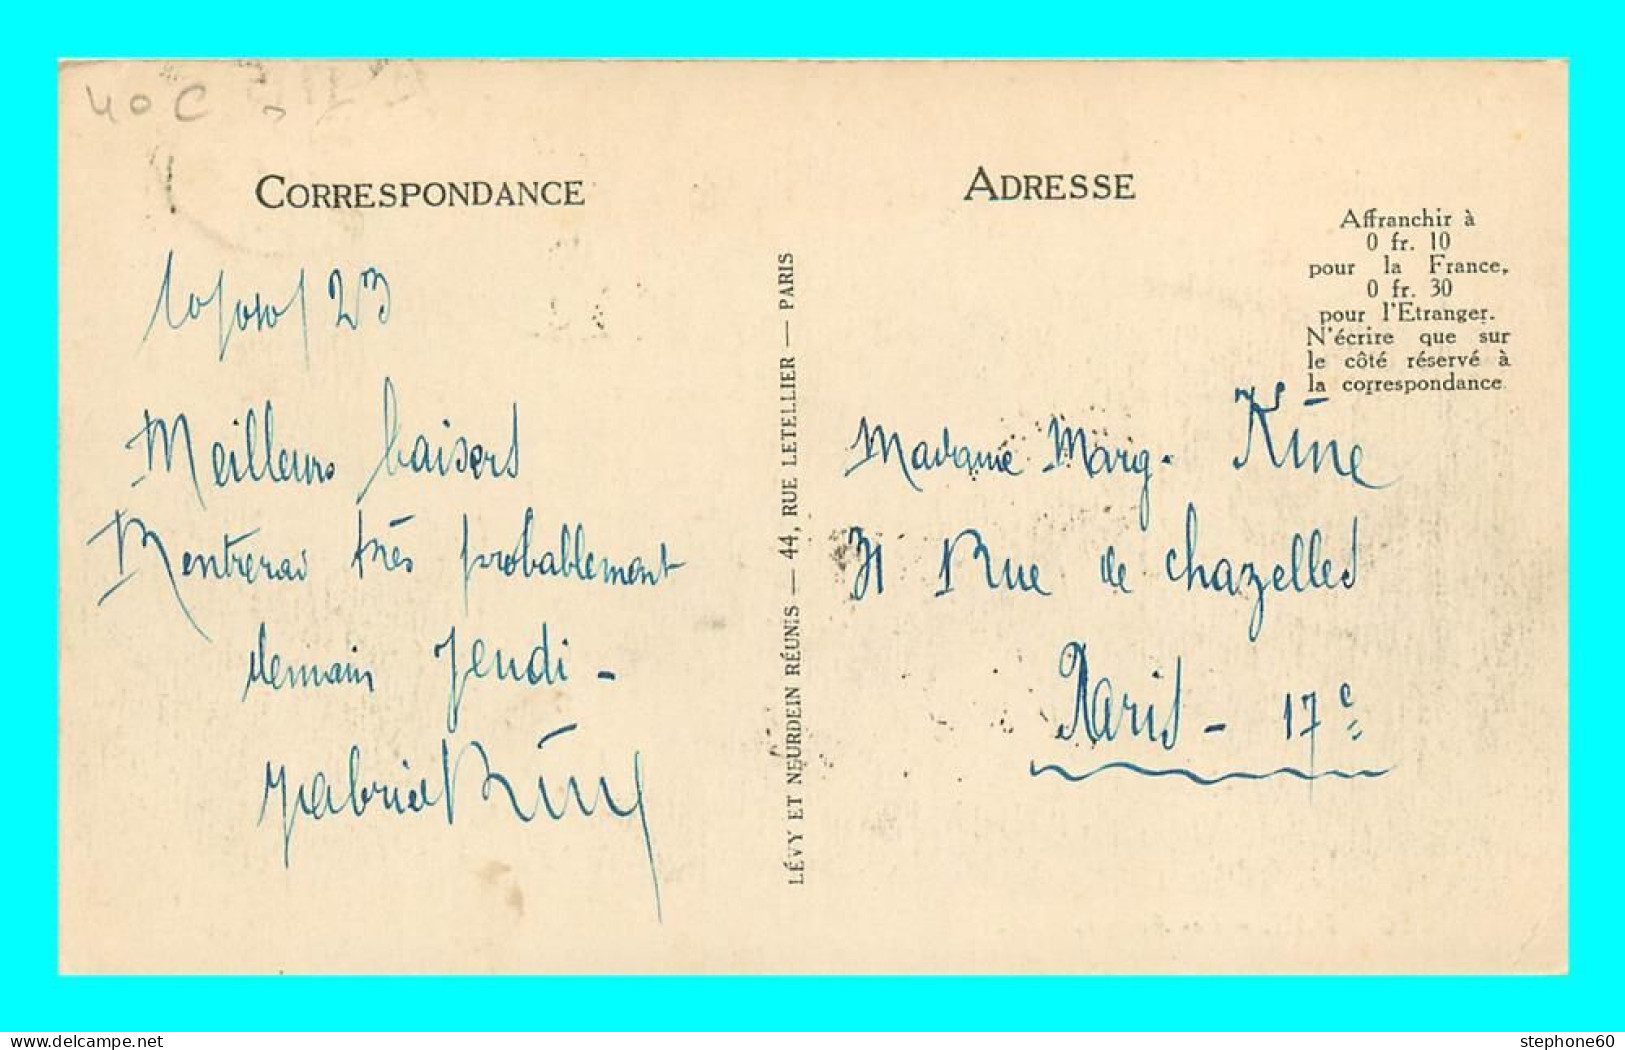 40 C
CORRESPONDANCE
10/10/23
Meilleurs baisers
Rentrerai très probablement
demain Jeudi -
Gabriel
ADRESSE
Affranchir à
0 fr. 10
pour la France,
0 fr. 30
pour l'Etranger.
N'écrire que sur
le côté réservé à
la correspondance
Madame Marg. King
31 Rue de Chazelles
Paris - 17e
LÉVY ET NEURDEIN RÉUNIS — 44, RUE LETELLIER — PARIS
stephone60